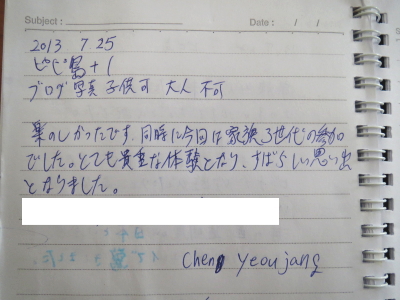 Subject :
Date : / /
2013 7.25
ピピ島+1
ブログ写真 子供可 大人 不可
楽のしかったです、同時に今回は家族3世代の参加
でした。とても貴重な体験となり、すばらしい思い出
となりました。
Cheng Yeoujang